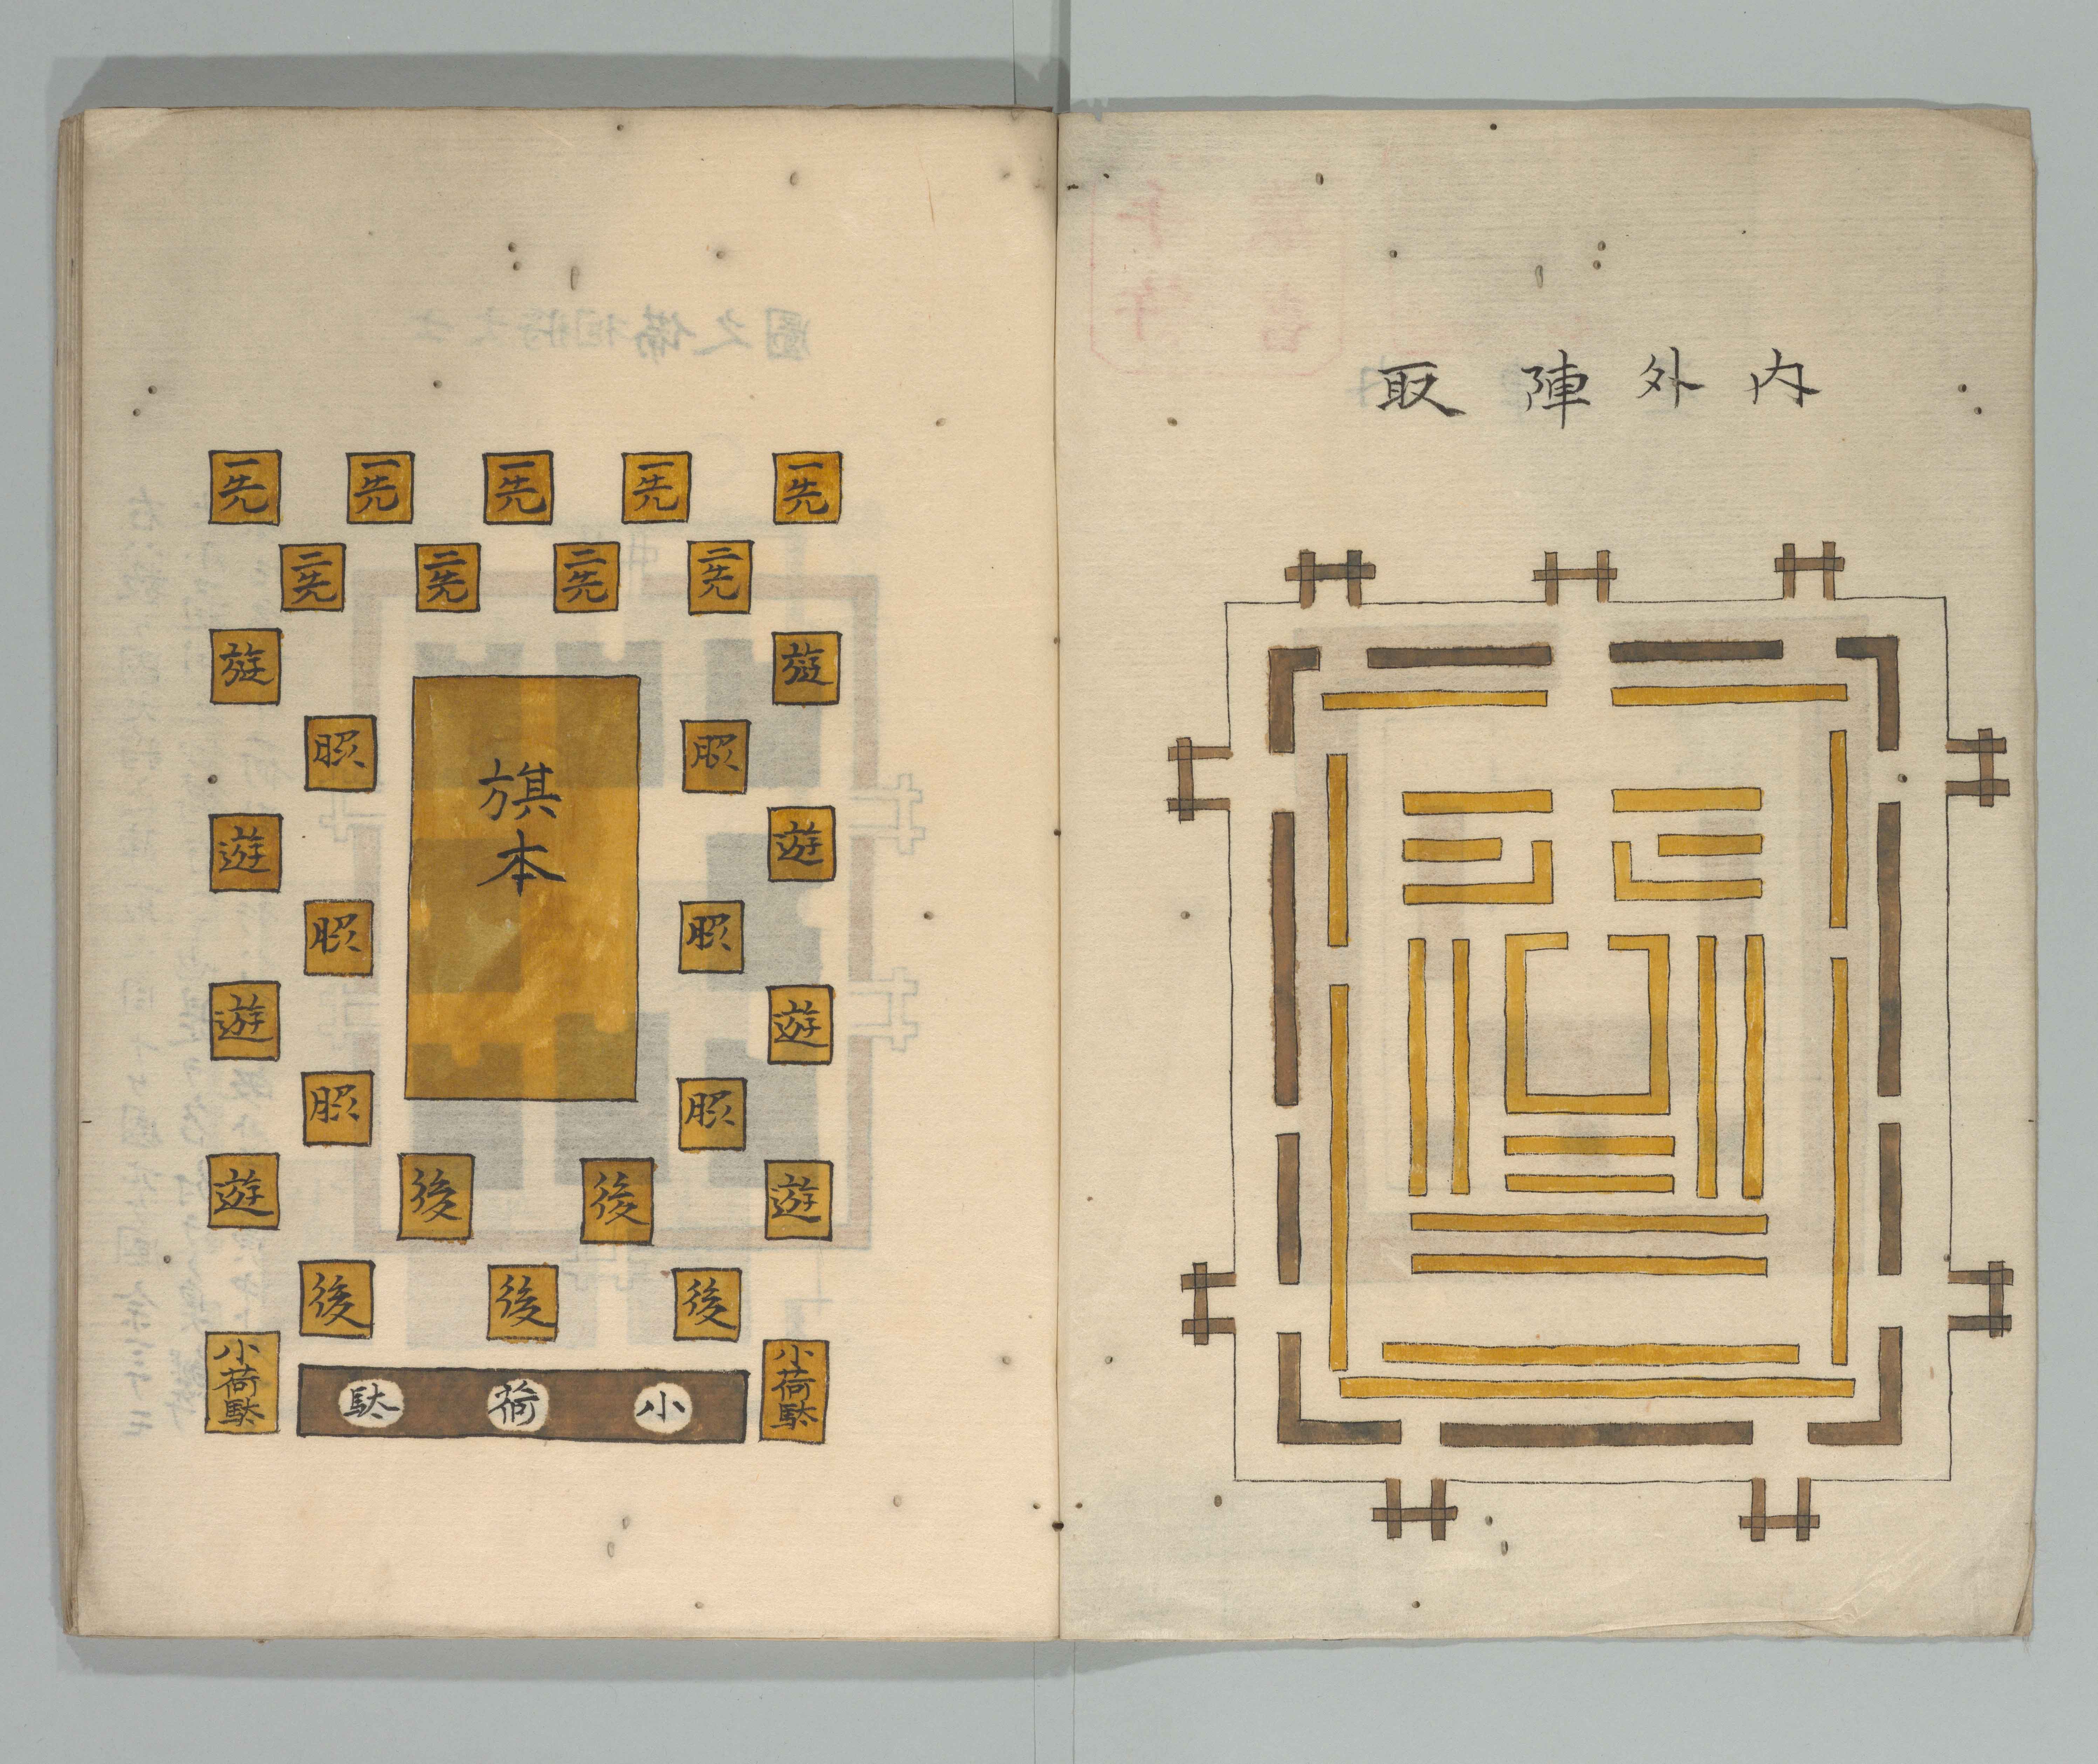 内外陣取
一先
一先
一先
一先
一先
二先
二先
二先
二先
遊
遊
脇
脇
旗本
遊
遊
脇
脇
遊
遊
脇
脇
遊
後
後
遊
後
後
後
小荷駄
小荷駄
小荷駄